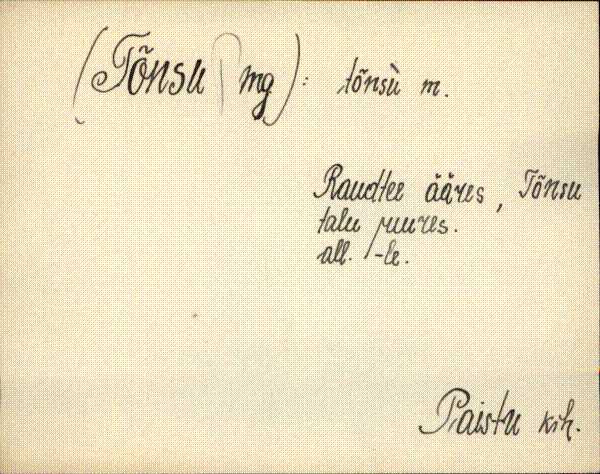 (Tõnsu mg): tõnsù m.
Raudtee ääres, Tõnsu
talu juures.
all. -le.
Paistu kih.